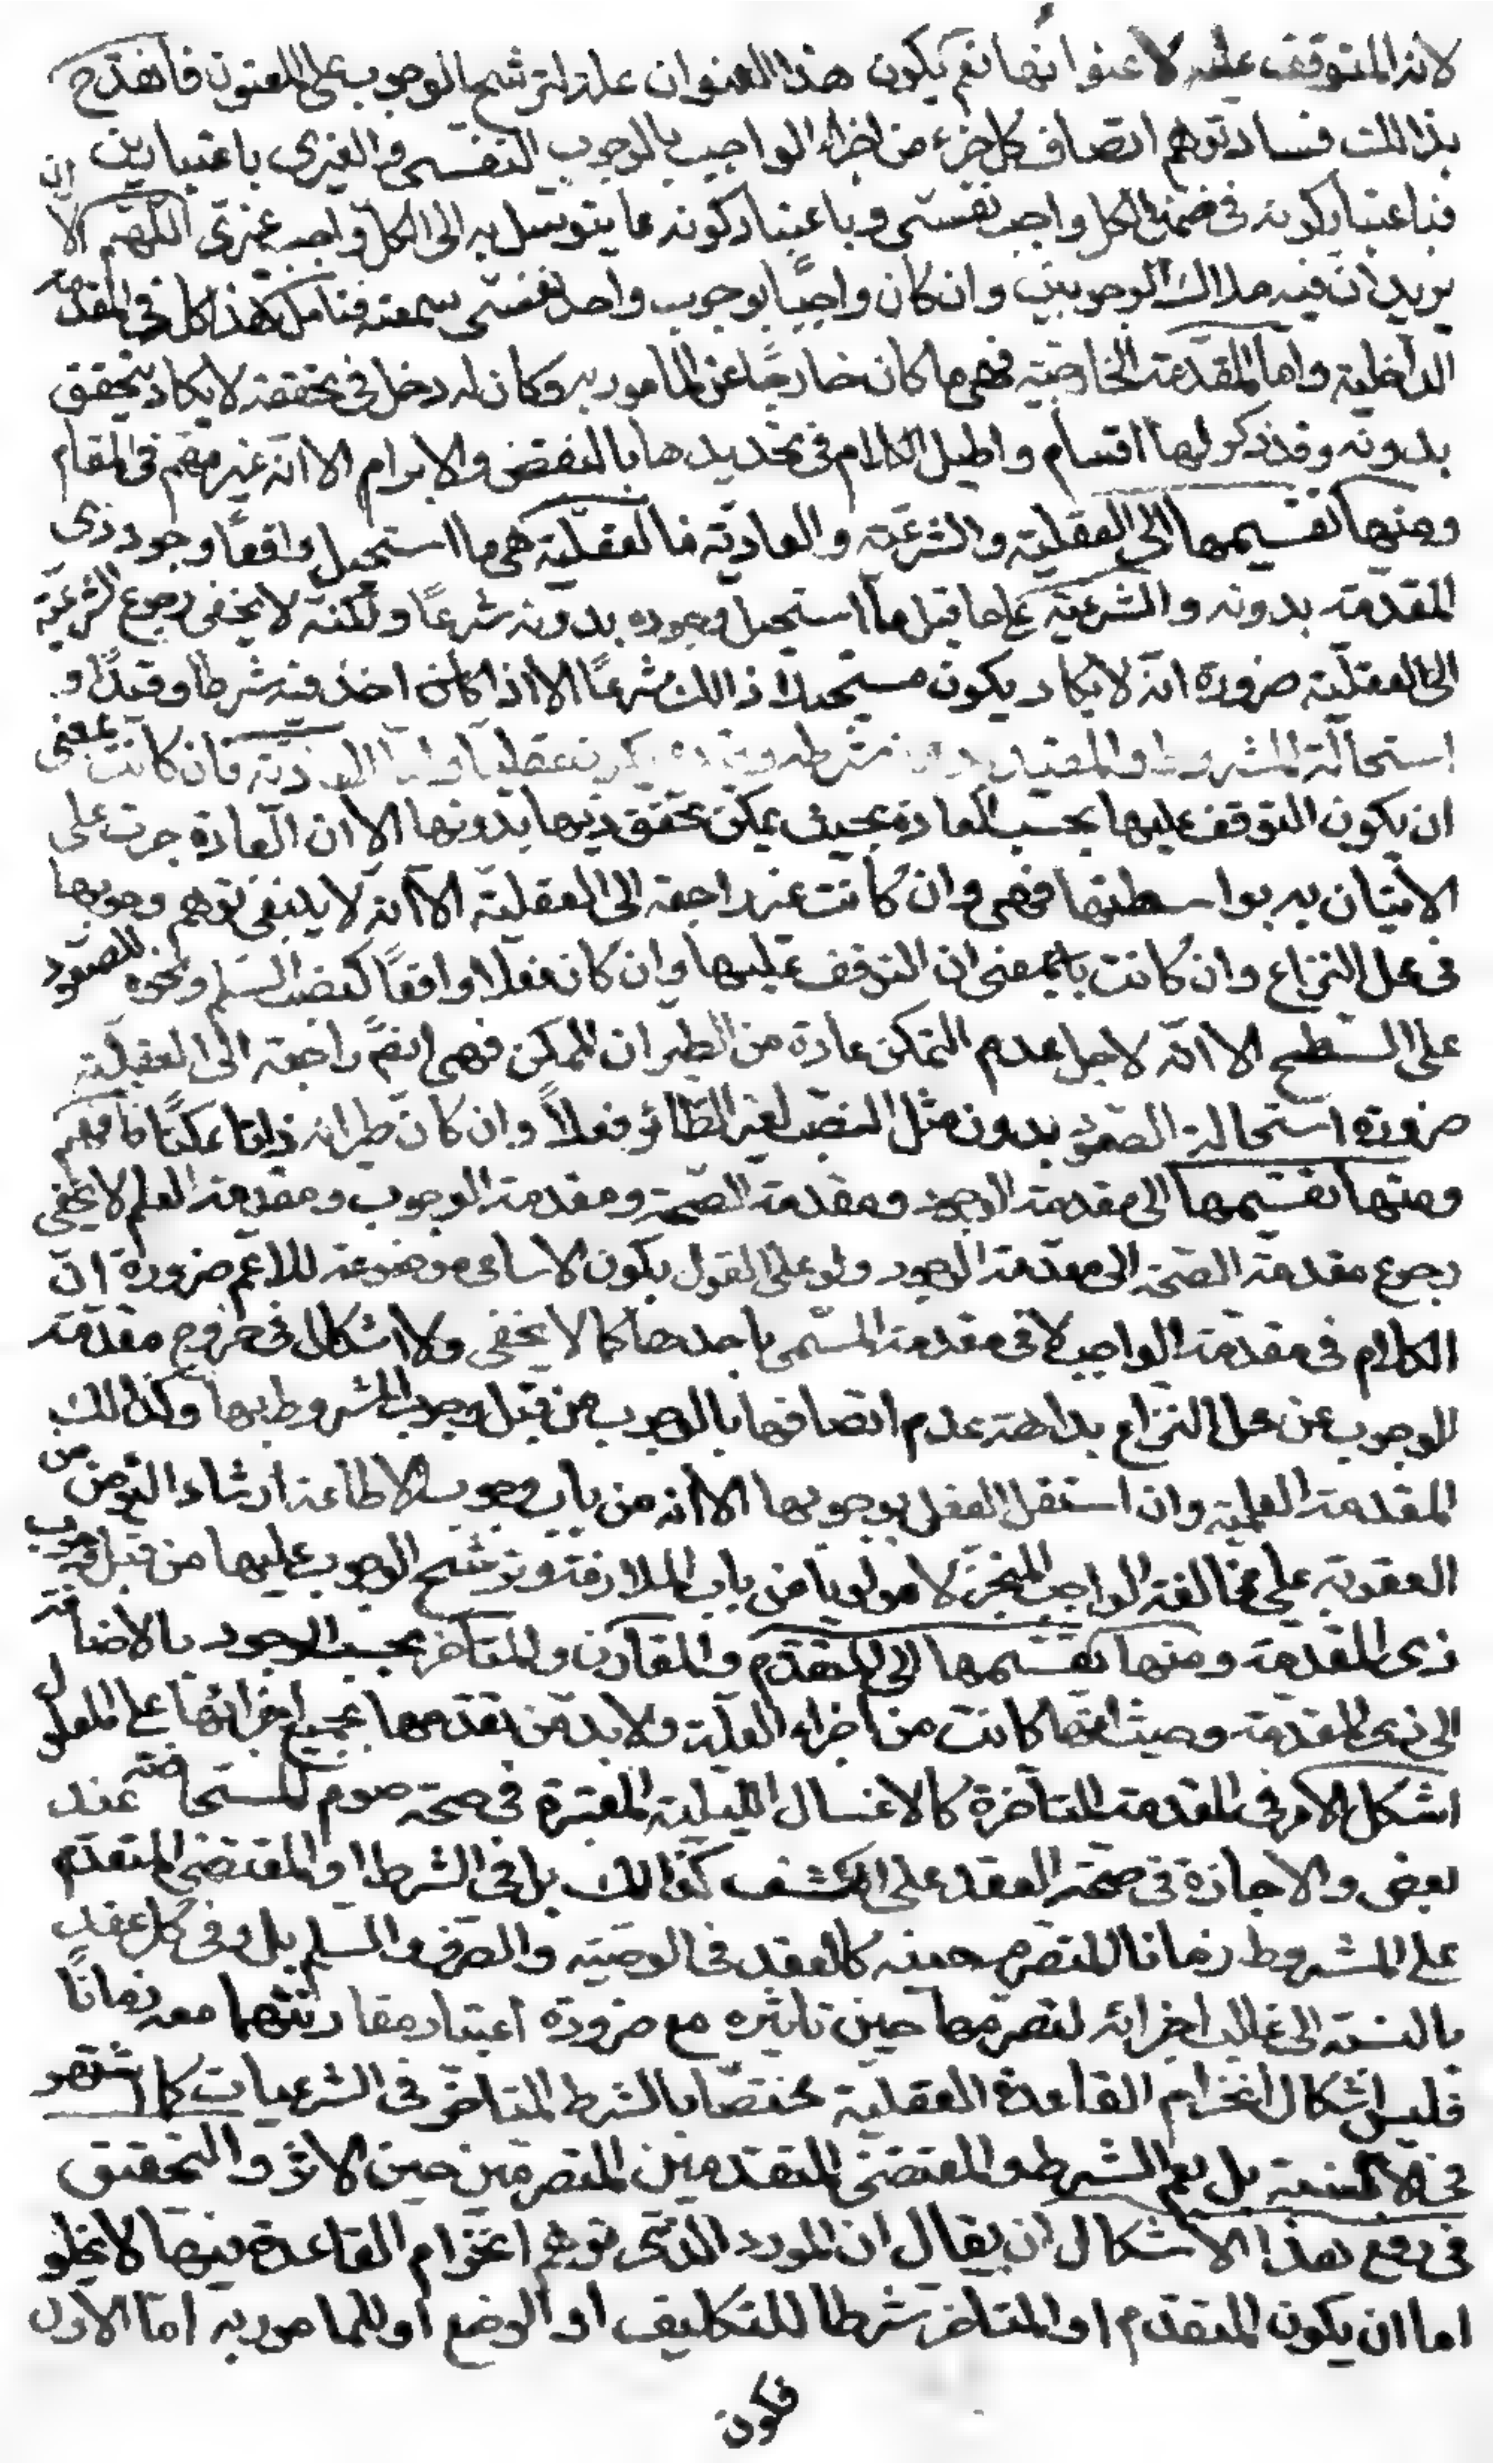 لانه المتوقف عليه لا عنوانها نعم يكون هذا العنوان علة لترشح الوجوب على المعنون فانقدح
بذالك فساد توهم اتصاف كل جزء من اجزاء الواجب بالوجوب النفسى والغيرى باعتبارين
فباعتبار كونه فى ضمن الكل واجب نفسى وباعتبار كونه مما يتوسل به الى الكل واجب غيرى اللهم الا ان
يريد ان فيه ملاك الوجوبين وان كان واجبًا بوجوب واحد نفسى لسبقه فتامل هذا كله فى المقدمة
الداخلية واما المقدمة الخارجية فهى ما كان خارجًا عن المامور به وكان له دخل فى تحققه لا يكاد يتحقق
بدونه وقد ذكر لها اقسام واطيل الكلام فى تحديدها بالنقض والابرام الا انه غير مهم فى المقام
ومنها تقسيمها الى العقلية والشرعية والعادية فالعقلية هى ما استحيل واقعًا وجود ذى
المقدمة بدونه والشرعية على ما قيل ما استحيل وجوده بدونه شرعًا ولكنه لا يخفى رجوع الشرعية
الى العقلية ضرورة انه لا يكاد يكون مستحيلا ذالك شرعًا الا اذا كان اخذ فيه شرطا وقيدًا و
استحالة المشروط والمقيد بدون شرطه وقيده يكون عقليا واما العادية فان كانت بمعنى
ان يكون التوقف عليها بحسب العادة بحيث يمكن تحقق ذيها بدونها الا ان العادة جرت على
الاتيان به بواسطتها فهى وان كانت غير راجعة الى العقلية الا انه لا ينبغى توهم وجوبها
فى محل النزاع وان كانت بالمعنى ان التوقف عليها وان كان فعلا واقعًا كنصب السلم ونحوه للصعود
على السطح الا انه لاجل عدم التمكن عادة من الطيران الممكن فهى ايضًا راجعة الى العقلية
ضرورة استحالة الصعود بدون مثل النصب لغير الطائر فعلاً وان كان طيرانه ذاتا ممكنًا فافهم
ومنها تقسيمها الى مقدمة الوجود ومقدمة الصحة ومقدمة الوجوب ومقدمة العلم لا يخفى
رجوع مقدمة الصحة الى مقدمة الوجود ولو على القول بكون الاسامى موضوعة للاعم ضرورة ان
الكلام فى مقدمة الواجب لا فى مقدمة المسمى باحدها كما لا يخفى ولا اشكال فى خروج مقدمة
الوجوب عن محل النزاع بداهة عدم اتصافها بالوجوب من قبل وجوب المشروط بها وكذالك
المقدمة العلمية وان استقل العقل بوجوبها الا انه من باب وجوب الاطاعة ارشاد التومن من
العقوبة على مخالفة الواجب المنجز لا مولويا من باب الملازمة وترشح الوجوب عليها من قبل وجوب
ذى المقدمة ومنها تقسيمها الى المتقدم والمقارن والمتاخر بحسب الوجود بالاضافة
الى ذى المقدمة وحيث انها كانت من اجزاء العلة ولا بد من تقدمها بجميع اجزائها على المعلول
اشكل الامر فى المقدمة المتاخرة كالاغسال الليلية المعتبرة فى صحة صوم المستحاضة عند
بعض والاجازة فى صحة العقد على الكشف كذالك بل فى الشرط او المقتضى المتقدم
على المشروط زمانا المتصرم حينه كالعقد فى الوصية والصرف والسلم بل وفى كل عقد
بالنسبة الى غالب اجزائه لتصرمها حين تاثيره مع ضرورة اعتبار مقارنتها معه زمانًا
فليس اشكال انخرام القاعدة العقلية مختصا بالشرط المتاخر فى الشرعيات كما اشتهر
فى الالسنة بل يعم الشرط والمقتضى المتقدمين المتصرمين حين الاثر والتحقيق
فى رفع هذا الاشكال ان يقال ان المورد الذى توهم انخرام القاعدة فيها لا يخلو
اما ان يكون المتقدم او المتاخر شرطا للتكليف او الوضع او للمامور به اما الاول
فكون